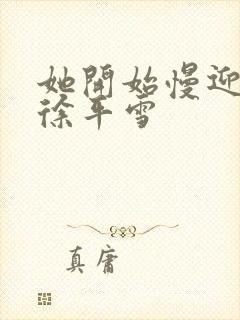 她開始慢迎
徐平雪
真庸